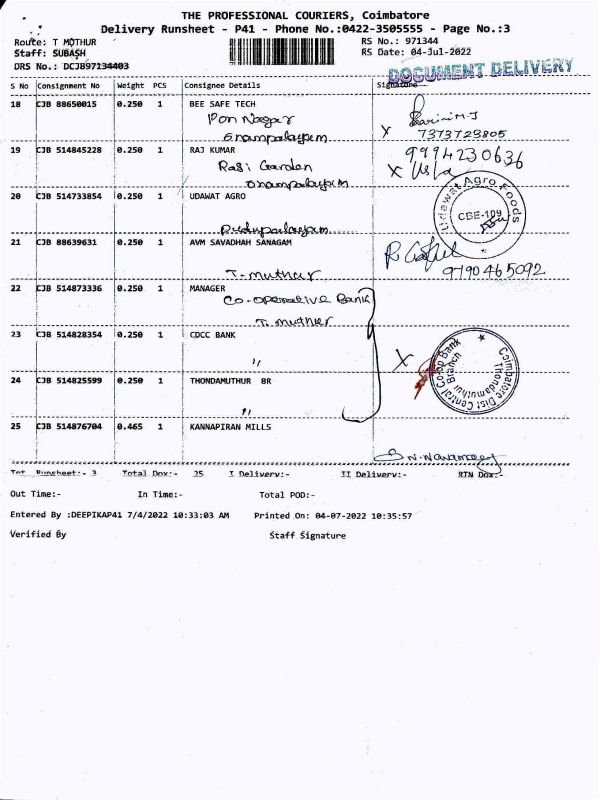 THE PROFESSIONAL COURIERS, Coimbatore
Delivery Runsheet - P41 - Phone No.:0422-3505555 - Page No.:3
Route: T MOTHUR RS No.: 971344
Staff: SUBASH RS Date: 04-Jul-2022
DRS No.: DCJB97134403
DOCUMENT DELIVERY
S No Consignment No Weight PCS Consignee Details Signature
18 CJB 88650015 0.250 1 BEE SAFE TECH
Pon Nagar
Onampalayam
X 7373723805
19 CJB 514845228 0.250 1 RAJ KUMAR 9994230636
Rasi Garden X Usha
Onampalayam
20 CJB 514733854 0.250 1 UDAWAT AGRO
Udawat Agro Foods
CBE-109
Pudupalayam
21 CJB 88639631 0.250 1 AVM SAVADHAH SANAGAM
T-muthur 9790465092
22 CJB 514873336 0.250 1 MANAGER
Co-operative Bank
T. muthur
23 CJB 514828354 0.250 1 CDCC BANK
〃 X
Coimbatore Dist Central Coop Bank
Thondamuthur Branch
24 CJB 514825599 0.250 1 THONDAMUTHUR BR
〃
25 CJB 514876704 0.465 1 KANNAPIRAN MILLS
Tot Runsheet:- 3 Total Dox:- 25 I Delivery:- II Delivery:- RTN Dox:-
Out Time:- In Time:- Total POD:-
Entered By :DEEPIKAP41 7/4/2022 10:33:03 AM Printed On: 04-07-2022 10:35:57
Verified By Staff Signature